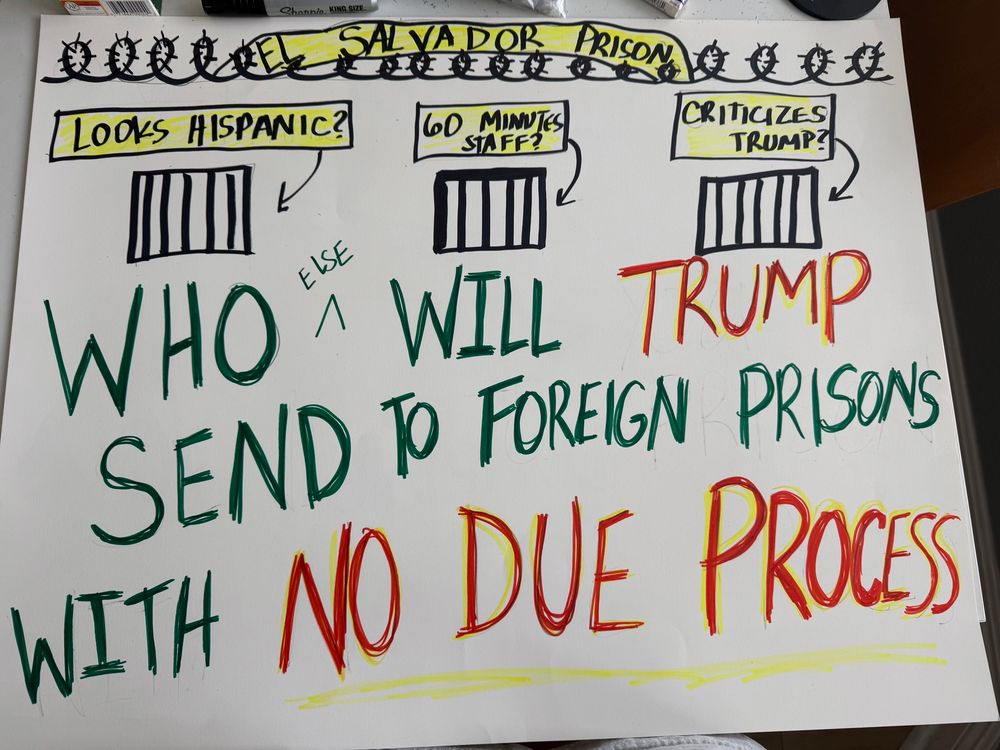 Sharpie KING SIZE
EL SALVADOR PRISON
LOOKS HISPANIC?
60 MINUTES
STAFF?
CRITICIZES
TRUMP?
ELSE
WHO ^ WILL TRUMP
SEND TO FOREIGN PRISONS
WITH NO DUE PROCESS